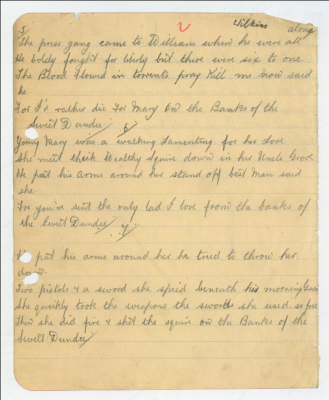 2 Wilkins
5 along
The press gang came to William when he were all
He boldy fought for liberty but there were six to one
The Blood flowed in torrents pray Kill me now said
he
For I'd rather die for Mary On the Banks of the
Sweet Dundee
6
Young Mary was a walking Lamenting for her Love
She met their Wealthy Squire down in her Uncle Grove
He put his arms around her stand off base Man said
she
For you've sent the only lad I love from the banks of
the Sweet Dundee
7
He put his arms around her he tried to throw her
down
Two pistols & a sword she spied beneath his morning Gown
She quickly took the weapons the sword she used so free
Then she did fire & shot the squire on the Banks of the
Sweet Dundee